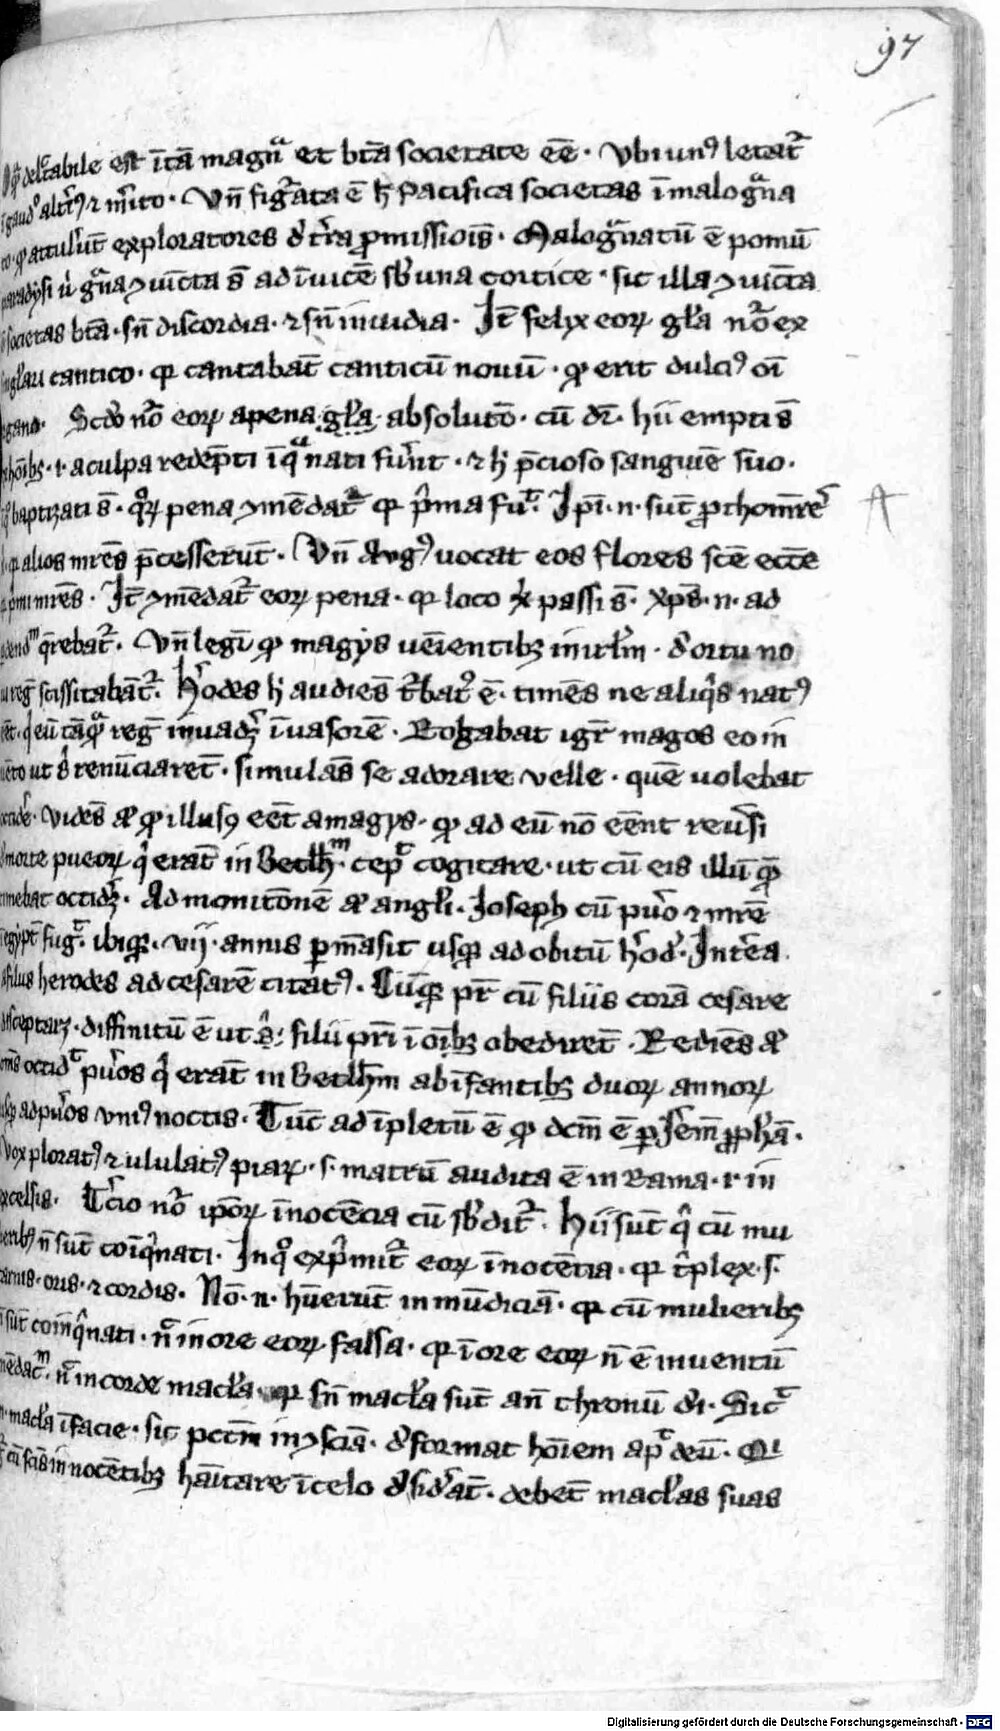 97
delc̄tabile est ītā magnᷓ et btā societate eē · vbi unꝰ letat᷑
gaudꝰ alt᷑iꝰ ⁊ m̄ito · Vn̄ figᷓata ē h̄ pacifica societas ī malogᷓna
to · ꝙ attuler̄ūt exploratores d̄ tr̄a ꝓmissiōis · Malogᷓnatū ē pomū
paradysi ū gᷓna ꝯiūcta s̄ ad īuicē sb̄ una cortice · sic illa ꝯiūcta
societas btā · sn̄ discordia · ⁊ sn̄ inuidia · It̄ felyx eoꝝ gl̄a nōr̄ ex
singl̄ari cantico · qꝛ cantabāt canticū nouū · ꝙ erit dulciꝰ oī
organo · Scd̄o nō eoꝝ a pena gl̄a absolutō · cū dr̄ · hii empti s̄
ex hōibꝫ · i · a culpa redēpti ī qᷓ nati fuer̄nt · ⁊ h̄ p̄cioso sanguīe suo ·
baptizati s̄ · qoꝝ pena ꝯmēdat᷑ qꝛ p̄ma fuit · Ip̄i · n · sūt ꝓthom̄res
qꝛ alios mr̄es p̄cesserūt · Vn̄ Augꝰ uocat eos flores scē ecc̄e
p̄mi mr̄es · It̄ ꝯmēdat᷑ eoꝝ pena · qꝛ loco xp̄i passi s̄ · xp̄s · n · ad
q̄rebat᷑ · Vn̄ legr̄ ꝙ magys ueīentibꝫ in irl̄m · d̄ ortu no
ui reg̅ scissitabāt᷑ · H̄odes h̄ audiēs t᷑batꝰ ē · timēs ne aliqͥs natꝰ
eēt · q eū tāqᷓ reg̅ inuadꝫ īuasorē · Rogabat igr̄ magos eo in
uēto ut s̄ renūciarēt · simulās se adorare velle · quē uolebat
occidē · Vidēs aū ꝙ illusꝰ eēt a magys · ꝙ ad eū nō eēnt reūsi
d̄ morte pueoꝝ qͥ erāt in Bethl̄m · cepit cogitare · ut cū eis illū q̄
timebat occidꝫ · Ad monitōnē aū angl̄i · Ioseph cū pūo ⁊ mr̄ē
ī egypt̄ fugit · ibiqꝫ · vij · annis ꝑmāsit usqꝫ ad obitū h̄od̄ · Int̄ea
filius herodes ad cesarē citatꝰ · Cūqꝫ pr̄ cū filiis corā cesare
discept̄arꝫ · diffinitū ē ut s̄ · filii pr̄i ī oībꝫ obedirēt · Rediēs aū
omēs occidit pūos qͥ erāt in Bethl̄m ab īfantibꝫ duoꝝ annoꝝ
usqꝫ ad pūos vniꝰ noctis · Tūc adīpletū ē ꝙ dc̄m ē ꝑ Jer̄em̄ ꝓph̄ā ·
Vox ploratꝰ ⁊ ululatꝰ piaꝝ · s · matrū audita ē in Rama · i · in
excelsis · T᷑cio nōr̄ ip̄oꝝ īnocēcia cū sb̄dit᷑ · Hii sūt qͥ cū mu
lieribꝰ n̄ sūt coīqͥnati · In qͦ exp̄mit᷑ eoꝝ īnocētia · qꝛ t᷑plex · s ·
carnis · oris · ⁊ cordis · Nō · n · hūerūt inmūdiciā · qꝛ cū mulieribꝫ
n̄ sūt coīnqͥnati · n̄ in ore eoꝝ falsa · qꝛ ī ore eoꝝ n̄ ē inuentū
mēdac̄m · n̄ in corde macl̄a · qꝛ sn̄ macl̄a sūt an̄ thronū d̄i · Sic̄
n · macl̄a ī facie · sic pcc̄m in ꝯsciā · d̄format hōīem ap̄ deū · Qi
cū scīs innocētibꝫ hāitare ī celo d̄sid̄āt · debēt macl̄as suas
A
Digitalisierung gefördert durch die Deutsche Forschungsgemeinschaft - DFG